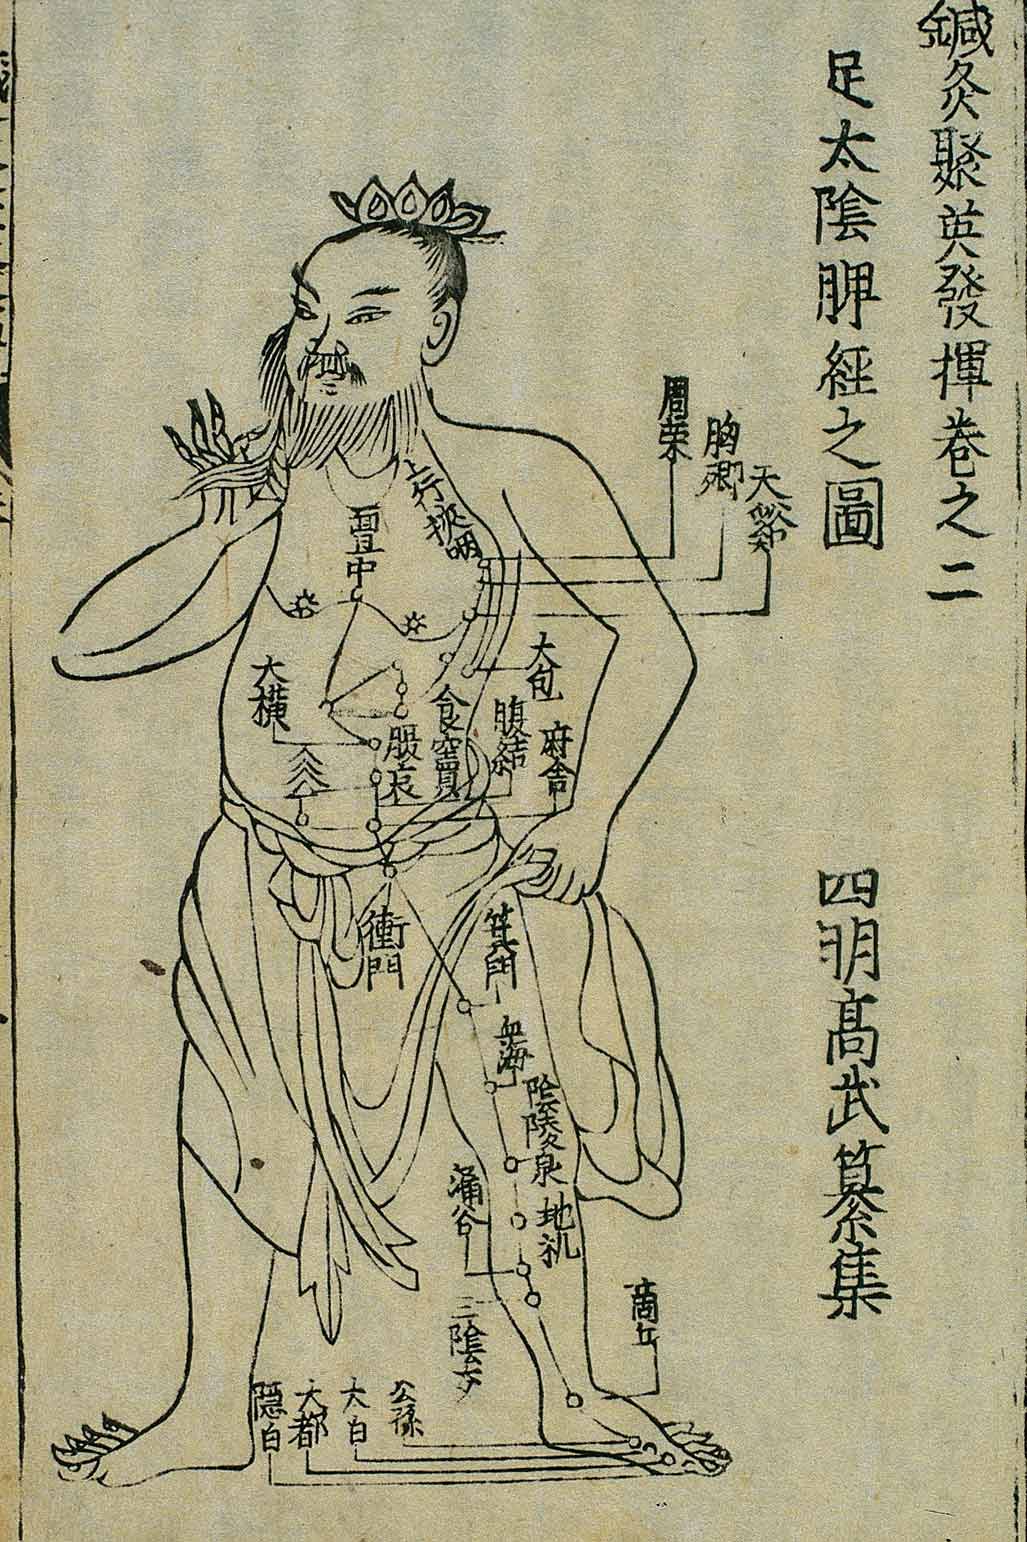 鍼灸聚英發揮卷之二
足太陰脾經之圖
四明髙武纂集
周荣
胸鄉
天谿
上行挾咽
亶中
大包
大橫
食竇
腹結
府舍
腹哀
衝門
箕門
血海
陰陵泉
地机
漏谷
三陰交
商丘
公孫
大白
大都
隱白